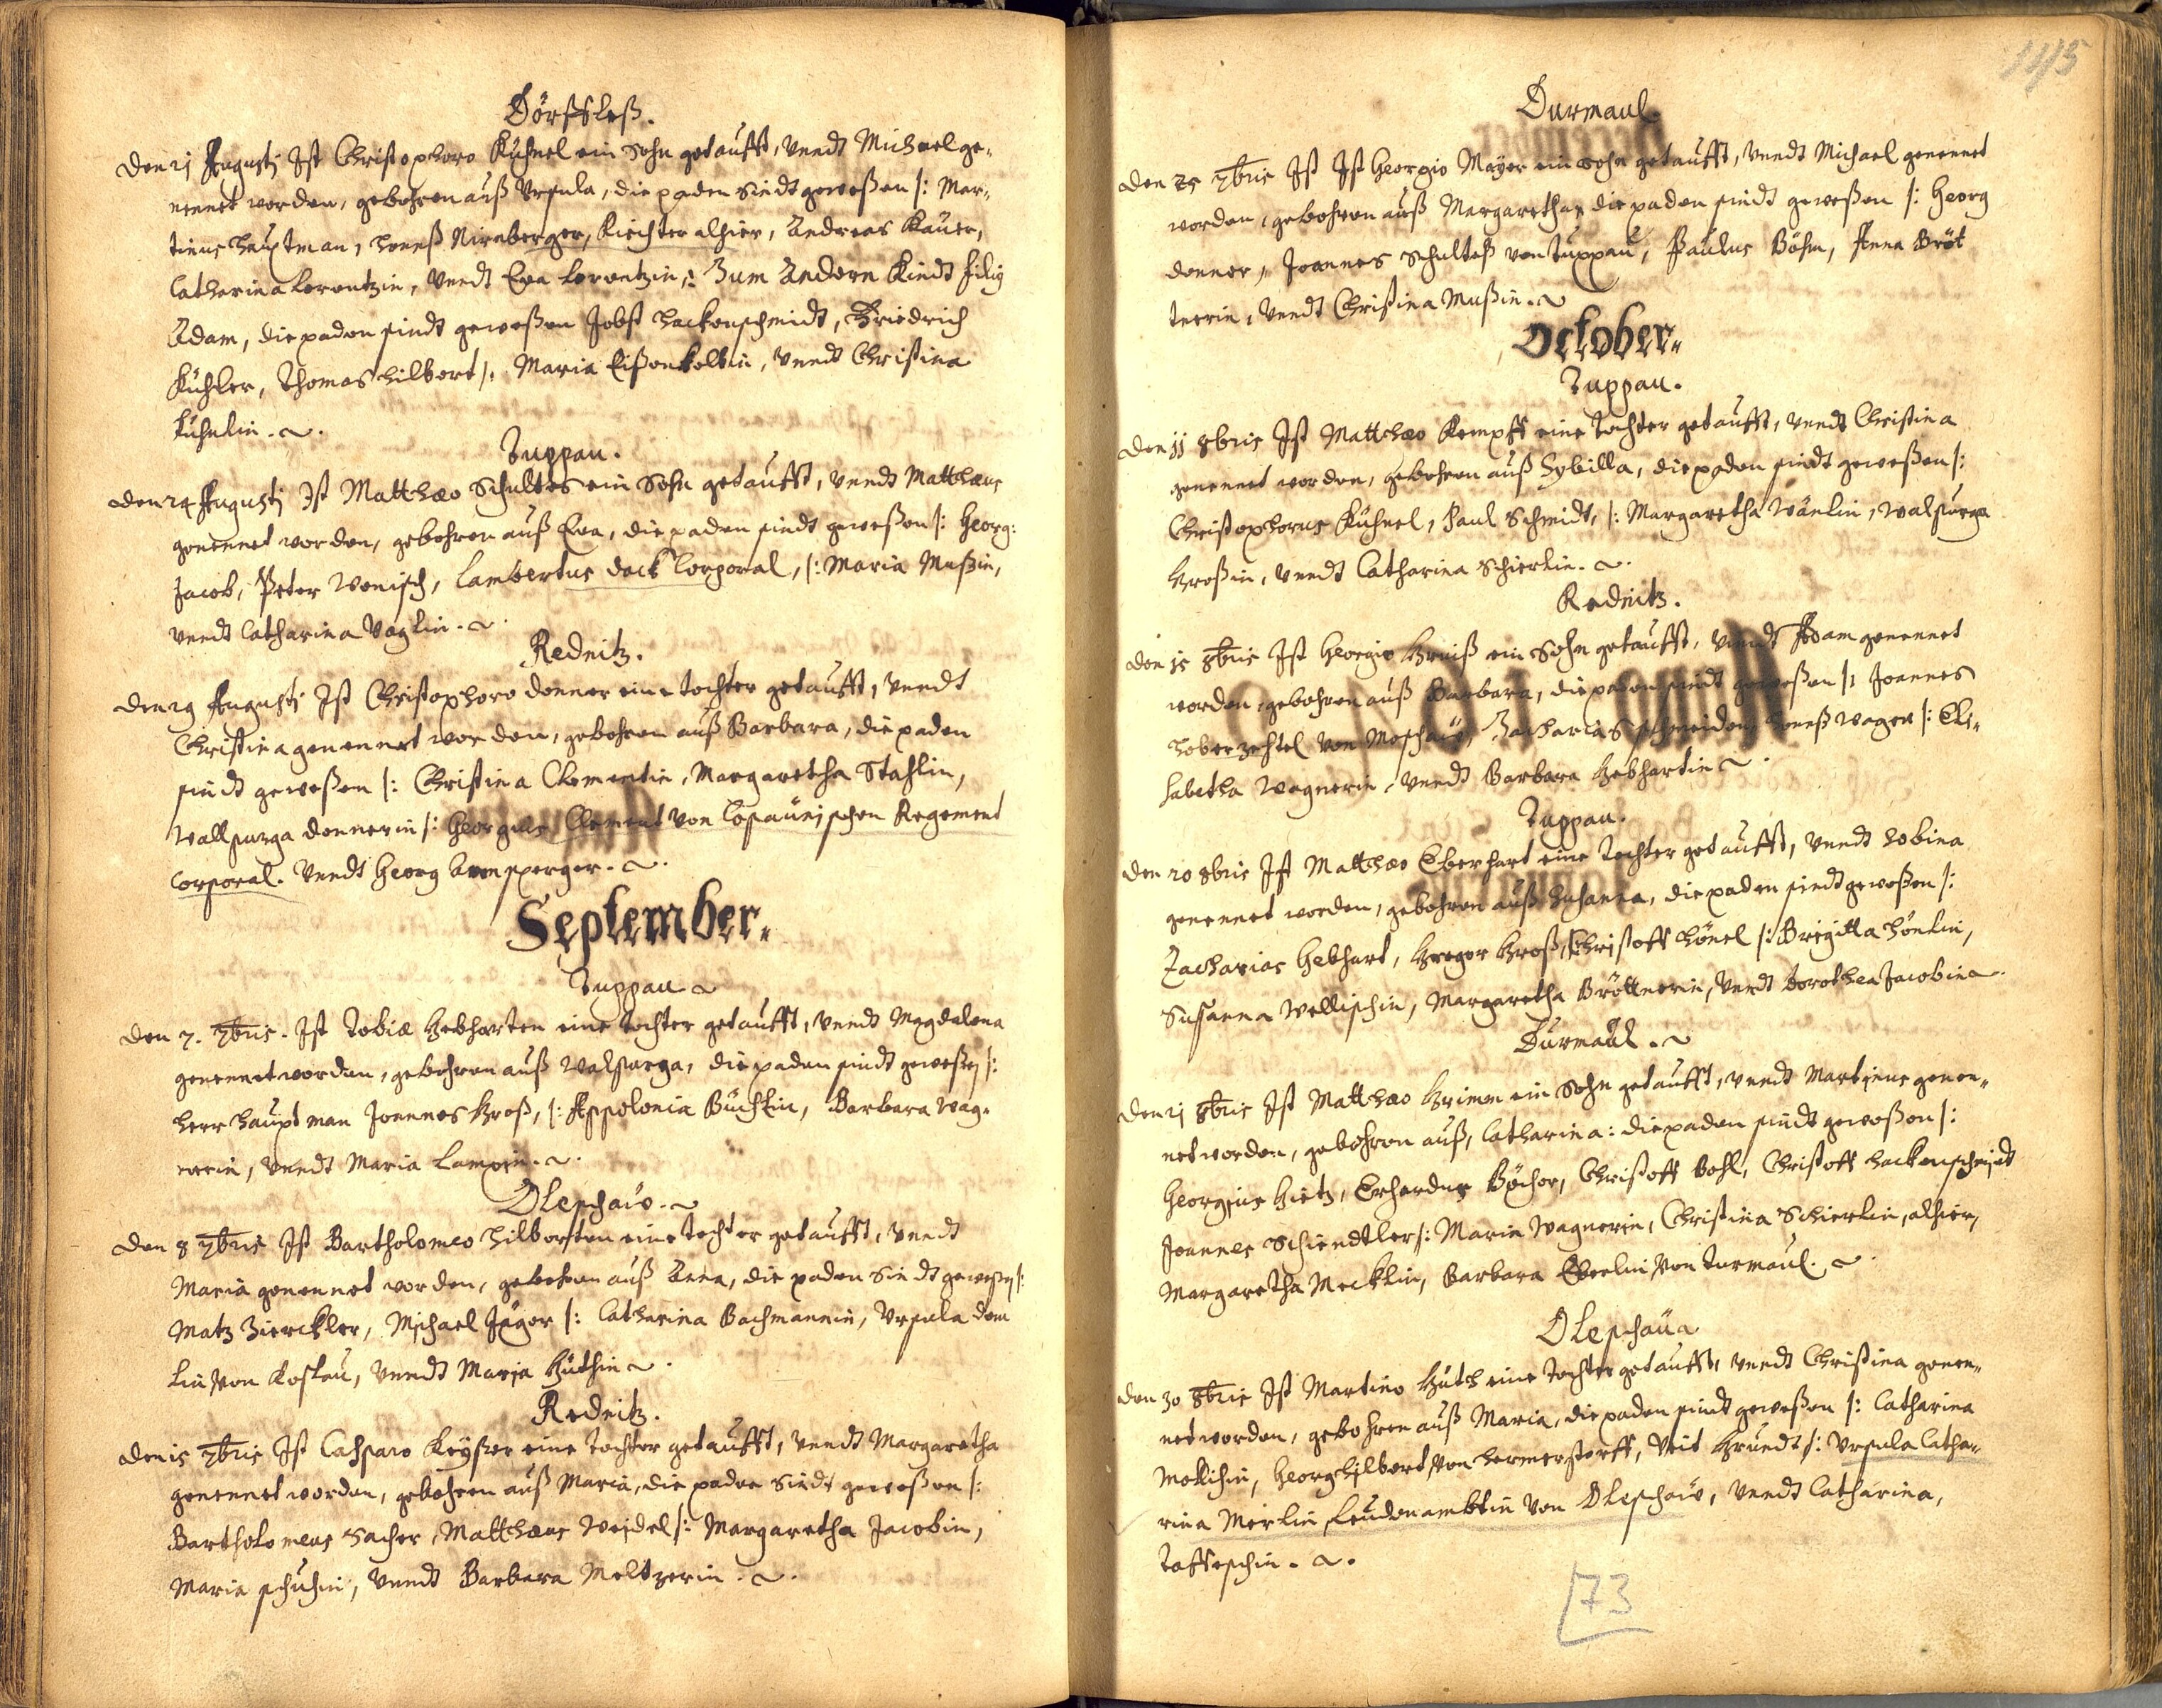 Dörffleß.
Den 21 Augustj Ist Christophoro Kühnel ein Sohn getaufft, vnndt Michael ge-
nennet worden, gebohren auß Vrsula, die paden Sindt geweßen |: Mar-
tinus Hauptman, Hannß Nirnberger, Richter alhier, Andreas Kauer,
Catharina Lorentzin, vnndt Eva Lorentzin, :| Zum Andern Kindt filij
Adam, die paden sindt geweßen Jobst Hackenschmidt, Friedrich
Kühler, Thomas Hilbert |: Maria Eißenkolbin, vnndt Christina
Kühnlin.
Tuppau.
Den 24 Augustj Ist Matthæo Schultes ein Sohn getaufft, vnndt Matthæus
genennet worden, gebohren auß Eva, die paden sindt geweßen |: Georg:
Jacob, Peter Wenisch, Lambertus Dack Corporal, |: Maria Mußin,
vnndt Catharina Voglin.
Rednitz.
Den 29 Augustj Ist Christophoro Donner eine tochter getaufft, vnndt
Christina genennet worden, gebohren auß Barbara, die paden
sindt geweßen |: Christina Clementin, Margaretha Stahlin,
Wallpurga Donnerin |: Georgius Clement von Copaunischen Regement
Corporal. vnndt Georg
September.
Tuppau
Den 7. 7bris. Ist Tobiæ Gebharten eine tochter getaufft, vnndt Magdalena
genennet worden, gebohren auß Walpurga, die paden sindt geweßen |:
Herr Hauptman Joannes Groß, |: Appolonia Büchlin, Barbara Wag-
nerin, vnndt Maria Lampin.
Olleschaw.
Den 8 7bris Ist Bartholomeo Hilberten eine tochter getaufft, vnndt
Maria genennet worden, gebohren auß Anna, die paden Sindt geweßen |:
Matz Zierckler, Michael Jäger |: Catharina Bachmannin, Vrsula Dom
lin von Koslau, vnndt Maria Güthin
Rednitz.
Den 15 7bris Ist Casparo Keÿßer eine tochter getaufft, vnndt Margaretha
genennet worden, gebohren auß Maria, die paden Sindt geweßen |:
Bartholomeus Sacher, Matthæus Weidel |: Margaretha Jacobin,
Maria Schuhin, vnndt Barbara Meltzerin.
145
Durmaul.
Den 25 7bris Ist Ist Georgio Maÿer ein sohn getaufft, vnndt Michael genennet
worden, gebohren auß Margaretha, die paden sindt geweßen |: Georg
Donner, Joannes Schulteß von Tuppau, Paulus Böhm, Anna Bröt
tnerin, vnndt Christina Mußin.
October.
Tuppau.
Den 11 8bris Ist Matthæo Kempff eine tochter getaufft, vnndt Christina
genennet worden, gebohren auß Sybilla, die paden sindt geweßen |:
Christophorus Kühnel, Paul Schmidt, |: Margaretha Wänlin, Walpurga
Großin, vnndt Catharina Schierlin.
Rednitz.
Den 15 8bris Ist Georgio Greiß ein Sohn getaufft, vnndt Adam genennet
worden, gebohren auß Barbara, die paden sindt geweßen |: Joannes
Hoberzehtel von Moschaw, Zacharias Schneider, Hannß Wagner |: Eli-
sabetha Wagnerin, vnndt Barbara Gebhartin
Tuppau.
Den 20 8bris Ist Matthæo Eberhart eine tochter getaufft, vnndt Sobina
genennet worden, gebohren auß Susanna, die paden sindt geweßen |:
Zacharias Gebhart, Gregor Groß, Christoff Hönel |: Brigitta Hönlin,
Susanna Wellischin, Margaretha Bröttnerin, vnndt Dorothea Jacobin
Durmaul.
Den 21 8bris Ist Matthæo Grimm ein Sohn getaufft, vnndt Martinus genen-
net worden, gebohren auß, Catharina: die paden sindt geweßen |:
Georgius Hietz, Erhardus Bächer, Christoff Bohl, Christoff Hackenschmidt
Joannes Schiendtler |: Maria Wagnerin, Christina Schierlin, alhier,
Margaretha Mecklin, Barbara Eberlin von Turmaul.
Olleschau
Den 30 8bris Ist Martino Güth eine tochter getaufft, vnndt Christina genen-
net worden, gebohren auß Maria, die paden sindt geweßen |: Catharina
Mollichin, Georg Hilbert von Hermerstorff, Veit Gründt |: Vrsula Catha-
rina Mörlin Leudenambtin von Olleschaw, vnndt Catharina,
Toffeschin.
73